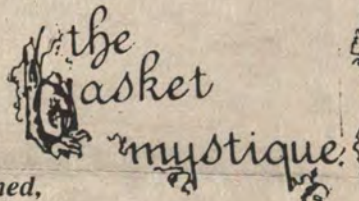 the
Casket
mystique
ned,